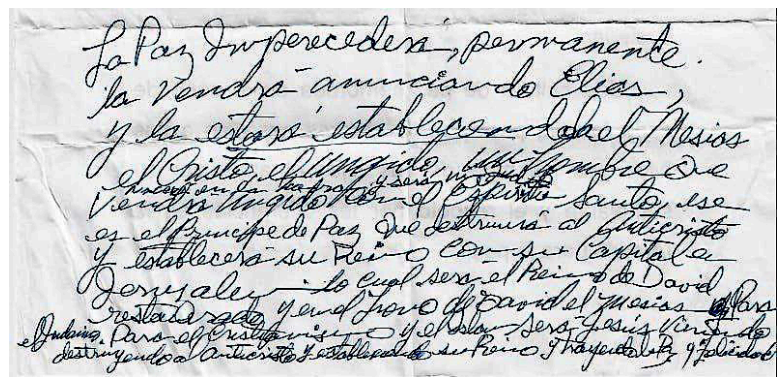 La Paz Imperecedera, permanente.
la Vendrá anunciando Elías,
y la estará estableciendola el Mesías
el Cristo, el Ungido, un hombre que
y será
Vendrá Ungido con el Espíritu Santo, ese
es el Príncipe de Paz que destruirá al Anticristo
y establecerá su Reino con su Capital en
Jerusalem lo cual será el Reino de David
restaurado y en el Trono de David el Mesías Para
el Judaísmo, Para el Cristianismo y el Islam será Jesús Viniendo
destruyendo a Anticristo y estableciendo su Reino y trayendo la Paz y felicidad